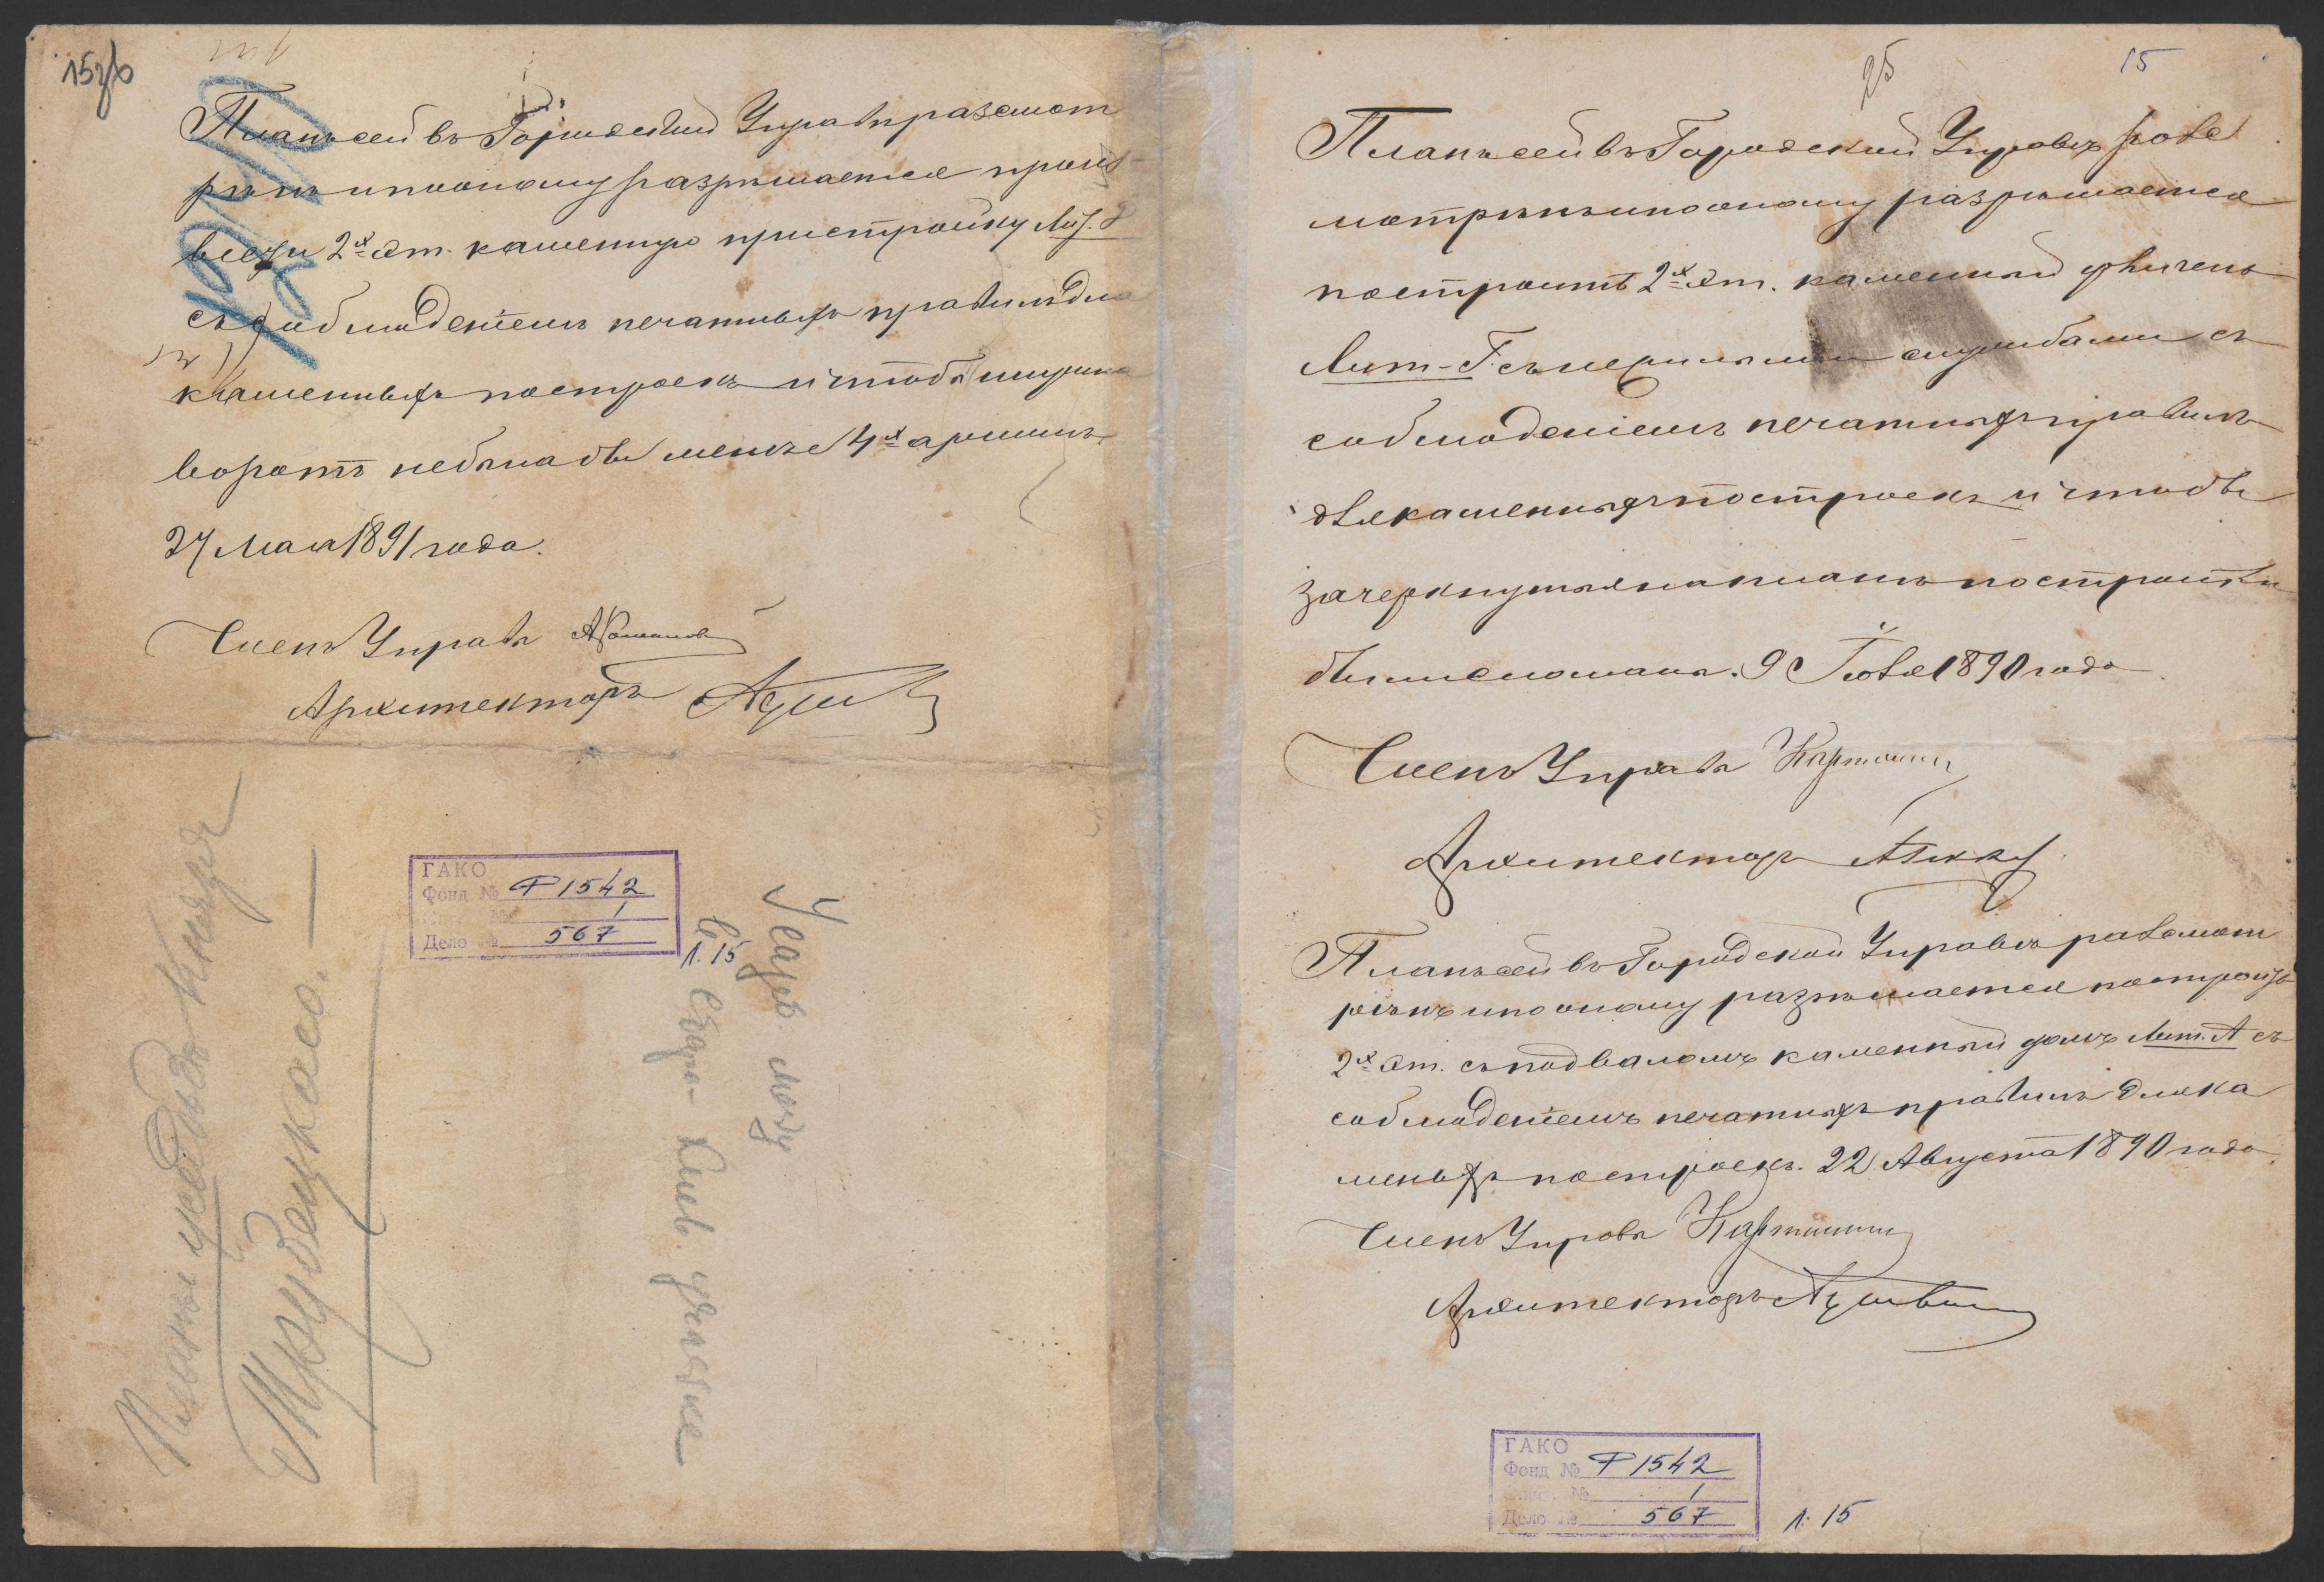 15зв
Планъ сей въ Городской Управѣ разсмот
рѣнъ и по оному разрѣшается произ-
вести 2х эт. каменную пристройку Лит. В
съ соблюденіемъ печатныхъ правилъ для
каменныхъ построекъ и чтобы ширина
воротъ не была бы менѣе 4х аршинъ
27 Мая 1891 года.
Членъ Управы
Архитекторъ
ГАКО
Фонд № Ф 1542
№ 1
Дело № 567
л. 15
Планы усадьбы Князя
Трубецкаго.
Усадь.
въ Старо-Кіев. участкѣ
25
15
Планъ сей въ Городской Управѣ разс
мотрѣнъ и по оному разрѣшается
построить 2х эт. каменный флигель
Лит-Г. съ службами съ
соблюденіемъ печатныхъ правилъ
для каменныхъ построекъ и чтобы
зачеркнутыя на планѣ постройки
были сломаны. 9 Іюля 1890 года
Членъ Управы
Архитекторъ
Планъ сей въ Городской Управѣ разсмот
рѣнъ и по оному разрѣшается построить
2х эт. съ подваломъ каменный домъ Лит. А съ
соблюденіемъ печатныхъ правилъ для ка
менныхъ построекъ. 22 Августа 1890 года.
Членъ Управы
Архитекторъ
ГАКО
Фонд № Ф 1542
№ 1
Дело № 567
л. 15